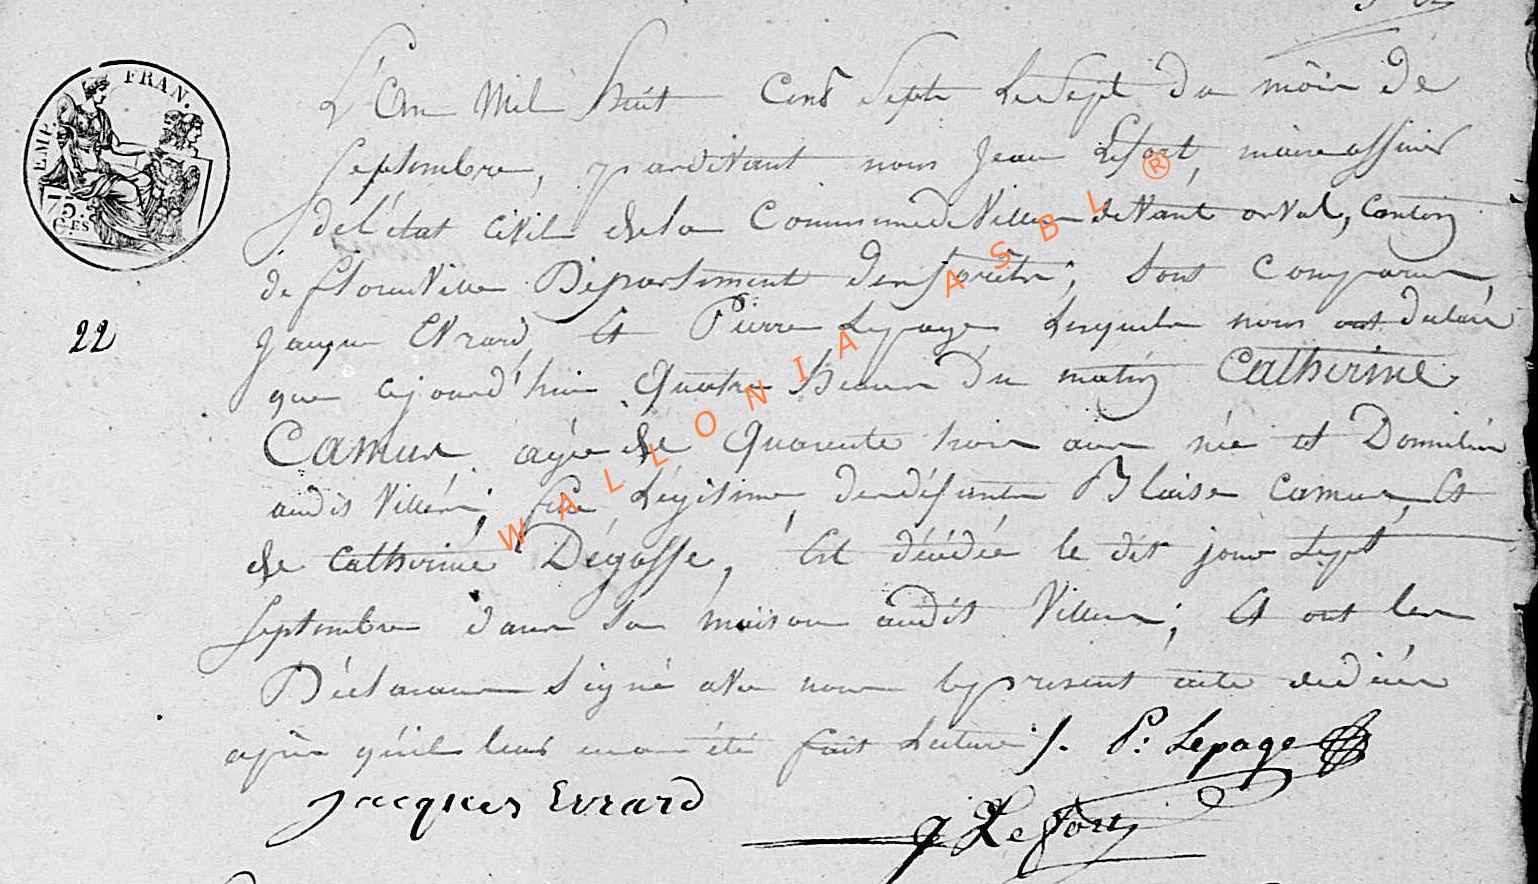 EMP. FRAN.
75.
CES
22
L'An Mil huit Cent Sept Le Sept Du mois De
Septembre, pardevant nous Jean Lefort, maire officier
de l'état Civil de la Commune de Villers devant orval, Canton
de florenville Département des forêts; Sont Comparus,
Jacque Evrard Et Pierre Lepage Lesquels nous ont declaré
que ajourd'hui Quatre heures Du matin Catherine
Camus agée de Quarente trois ans née et Domiciliée
audit Villers; fille Légitime des défunts Blaise Camus, Et
de Catherine Dégosse, Est décédée le dit jour Sept
Septembre dans Sa maison audit Villers; Et ont les
Déclarans Signé avec nous le present acte de décés
après qu'il leur en a été fait Lecture /. P: Lepage
Jacques Evrard
J Lefort
WALLONIA ASBL ®